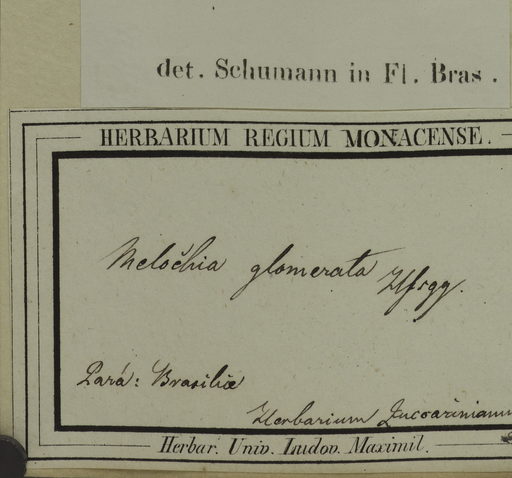 det. Schumann in Fl. Bras.
HERBARIUM REGIUM MONACENSE.
Melochia glomerata Hfsgg.
Pará: Brasiliæ
Herbarium Zuccarinianum
Herbar. Univ. Ludov. Maximil.